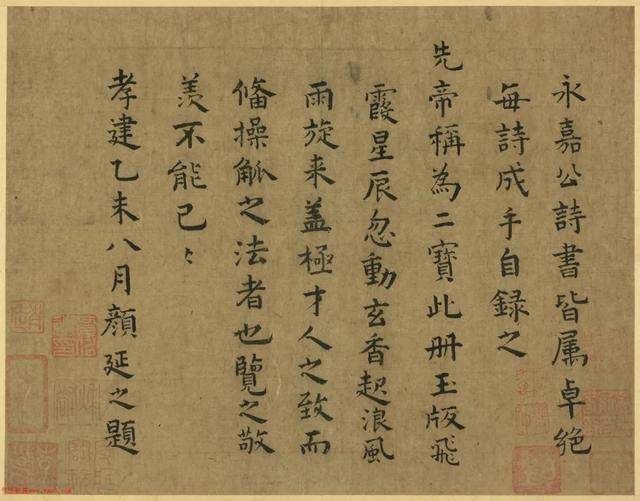 永嘉公詩書皆属卓绝
每詩成手自録之
先帝稱為二寶此册玉版飛
霞星辰忽動玄香起浪風
雨旋来盖極才人之致而
偹操觚之法者也覽之敬
羨不能已〻
孝建乙未八月顔延之題